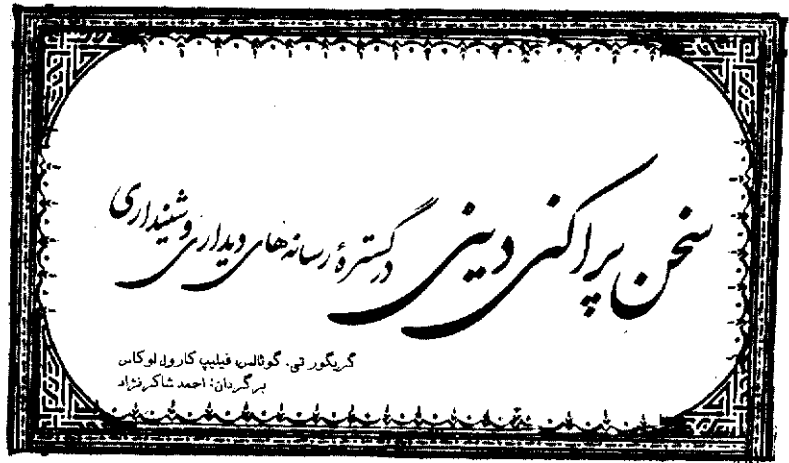 سخن پراکنی دینی در گسترهٔ رسانه‌های دیداری و شنیداری
گریگور تی. گوثالس، فیلیپ کارول لوکاس
برگردان: احمد شاکرنژاد